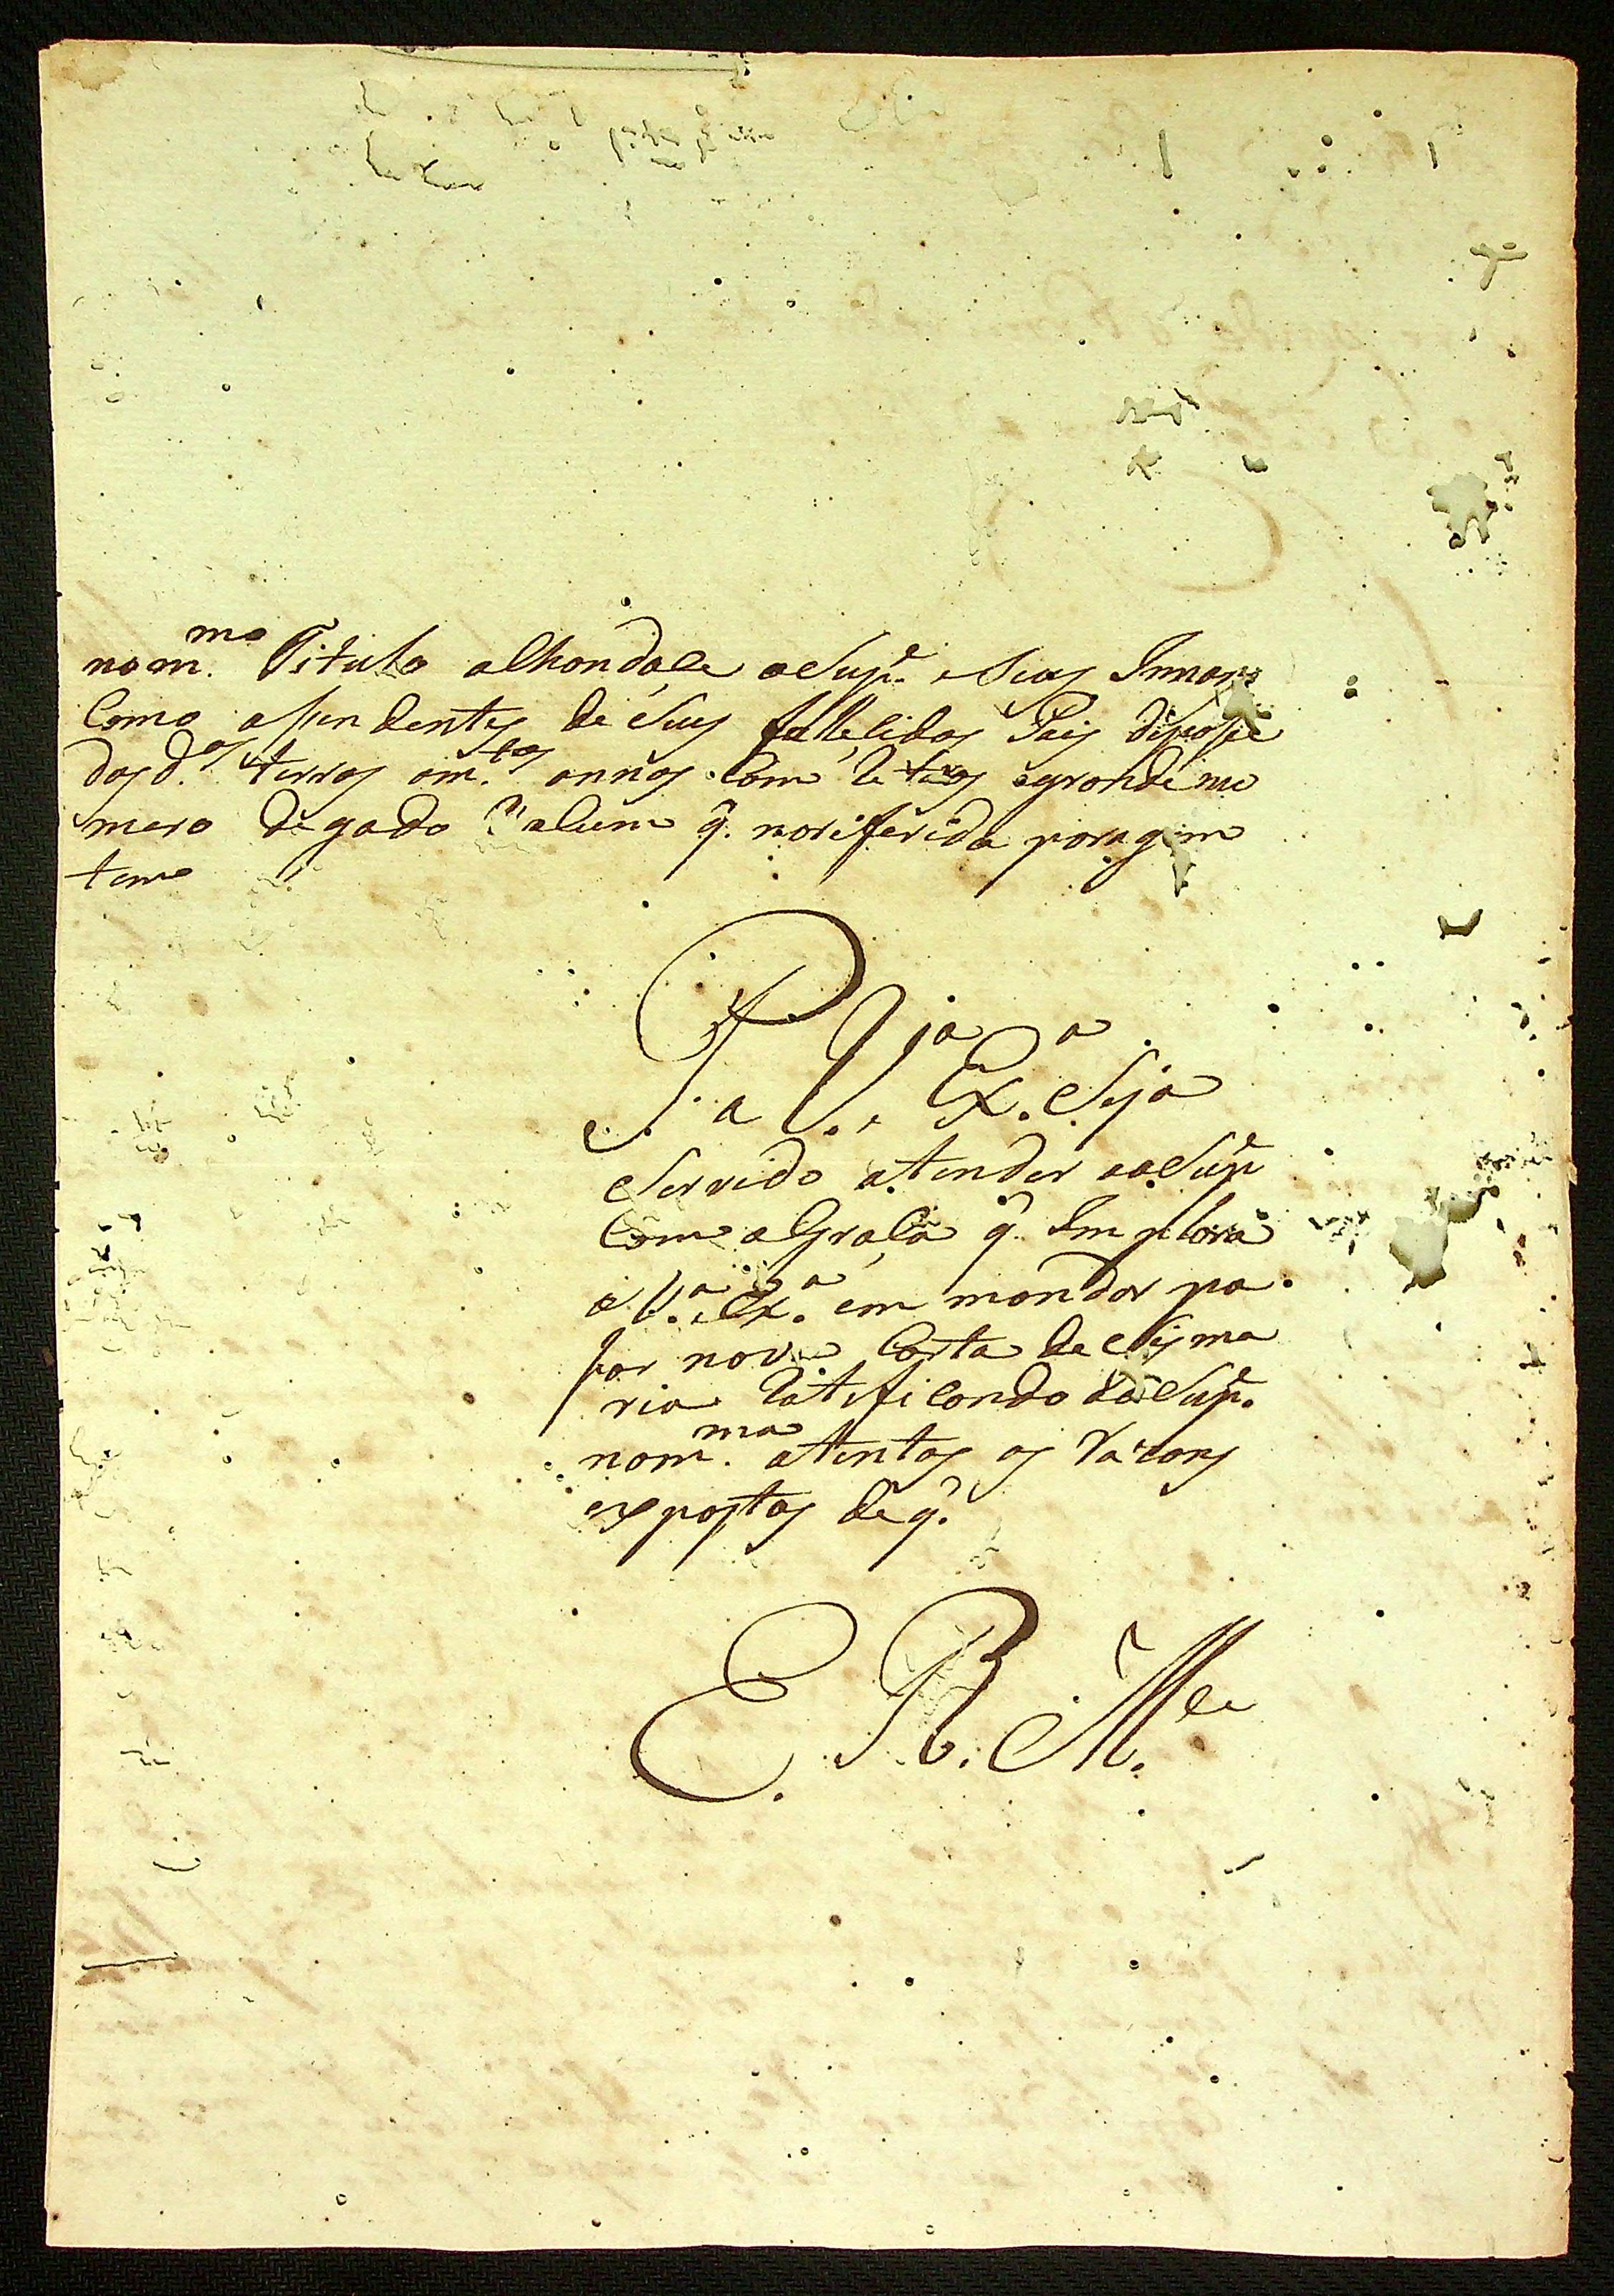 nom.mo Titulo alhondose o Sup.e e Seos Irmaos
Como asendentes de Seus fallecidos Pais de posse
das d.as terras a m.tos annos Com citios e grande nu
mero de gado Vacum q. na riferida paragem
tem
P.
P. a V.a Ex.a Seja
Servido atender ao Sup.e
Com a Graça q. Implora
a V.a Ex.a em mandar pa
sar nova Carta de Sisma
ria Ratificando ao Sup.e
na m.ma atentas as Razons
expostas de q.
E. R. M.ce